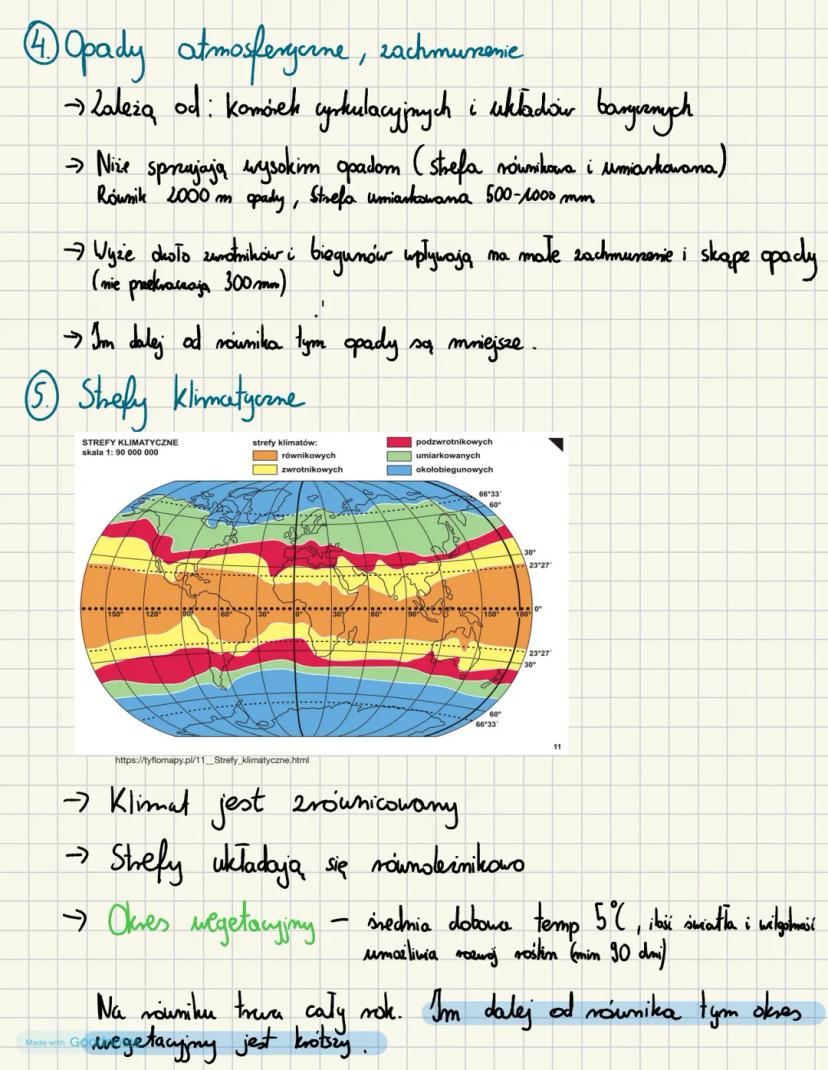 4. Opady atmosferyczne, zachmurzenie
→ Zależą od: komórek cyrkulacyjnych i układów barycznych
→ Niże sprzyjają wysokim opadom (strefa równikowa i umiarkowana)
Równik 2000 m opady, Strefa umiarkowana 500-1000 mm
→ Wyże około zwrotników i biegunów wpływają na małe zachmurzenie i skąpe opady
(nie przekraczają 300 mm)
→ Im dalej od równika tym opady są mniejsze.
5. Strefy klimatyczne
STREFY KLIMATYCZNE
skala 1: 90 000 000
strefy klimatów:
równikowych
zwrotnikowych
podzwrotnikowych
umiarkowanych
okołobiegunowych
66°33'
60°
30°
23°27'
150° 120° 90° 60° 30° 0° 30° 60° 90° 150° 180° 0°
23°27'
30°
60°
66°33'
11
https://tyflomapy.pl/11__Strefy_klimatyczne.html
→ Klimat jest zróżnicowany
→ Strefy układają się równoleżnikowo
→ Okres wegetacyjny – średnia dobowa temp 5°C, ilość światła i wilgotność
umożliwia rozwój roślin (min 90 dni)
Na równiku trwa cały rok. Im dalej od równika tym okres
wegetacyjny jest krótszy.
Made with